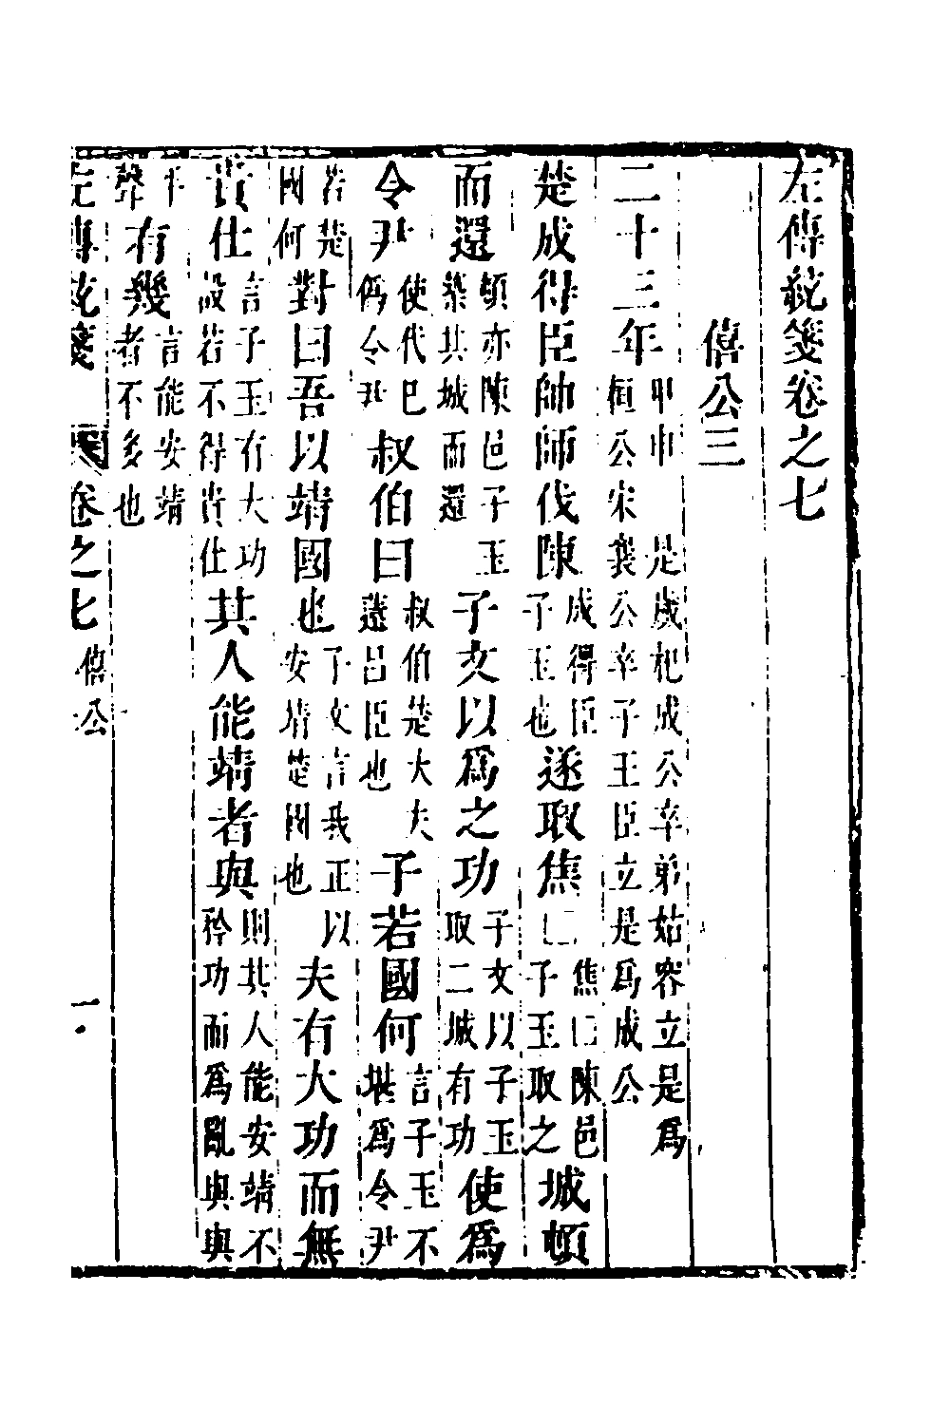 左傳統箋卷之七
僖公三
二十三年甲申是歲杞成公卒弟姑容立是爲桓公宋襄公卒子王臣立是爲成公
楚成得臣帥師伐陳成得臣子玉也遂取焦焦陳邑子玉取之城頓
而還頓亦陳邑子玉築其城而還子文以爲之功子文以子玉取二城有功使爲
令尹使代巳爲令尹叔伯曰叔伯楚大夫薳呂臣也子若國何言子玉不堪爲令尹
若楚國何對曰吾以靖國也子文言我正以安靖楚國也夫有大功而無
貴仕言子玉有大功設若不得貴仕其人能靖者與則其人能安靖不矜功而爲亂與與
平聲有幾言能安靖者不多也
左傳統箋 卷之七 僖公 一